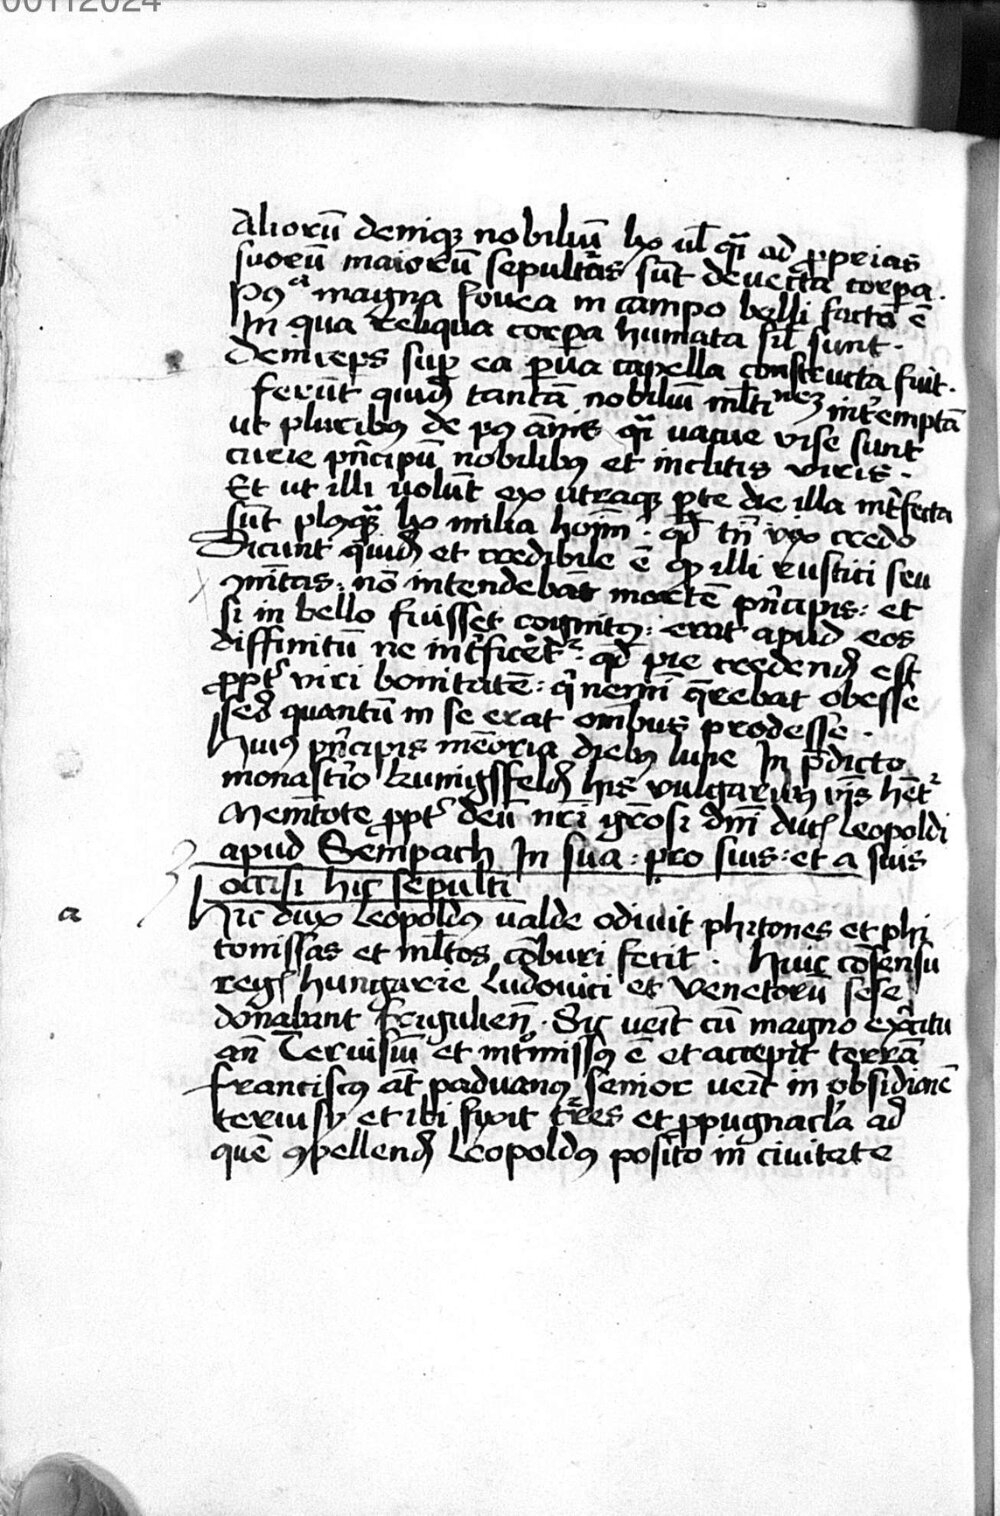 00112024
Aliorū deniqꝫ nobiliū lx ul̄ qͣi ad ꝓprias
suorū maiorū sepultᷓas sūt deuecta corꝑa.
Pꝰᵃ magna fouea in campo belli facta ē
In qua reliqua corꝑa humata sil̄ sunt.
Deinceps suꝑ ea ꝑua capella constructa fuit.
ferūt quid̄ tantā nobiliū ml̄tinēꝫ int̄emptā
ut pluribꝰ de pꝰ an̄is qͣi uacue vise sunt
curie pn̄cipū nobilibꝰ et inclitis viris.
Et ut illi uolūt ex utraqꝫ ꝑte die illa int̄fecta
sūt plꝰqᷓꝫ lx milia hoīm: qd̄ tn̄ vix credo
Dicunt quid̄ et credibile ē qꝫ illi rustici seu
ꝯmūitas: nō intendebāt mortē pn̄cipis: et
si in bello fuisset cognitꝰ: erat apud eos
diffinitū ne int̄ficeretᷣ: qd̄ pie credend̄ est
ꝓptᷣ viri bonitatē: qi nemī qͣrebat obesse
sed quantū in se erat omībus prodesse.
Huiꝰ pn̄cipis mēoria diebꝰ In p̄dicto
monast̄io Kunigsfeld̄ his vulgaribꝰ vīs hētᷣ
Mem̄tote ꝓptᷣ deū nr̄i gr̄osi dn̄i duc̄ Leopoldi
apud Sempach In sua: pro suis: et a suis
occisi hic sepulti
a
Hic dux Leopoldꝰ valde odiuit phitones et phi
tonissas et ml̄tos cōburi fecit. Huic cōsensu
reḡ hungarie Ludouici et Venetorū sese
donabant Friguliēn. Sic ueīt cū magno ex̄citu
an̄ Teruisiū et int̄missꝰ ē et accepit terrā
Franciscꝰ āt paduanꝰ senior ueīt in obsidionē
teruisy et ibi fixit tr̄res et ꝓpugnacl̄a ad
quē ꝯpellend̄ Leopoldꝰ posito in ciuitate